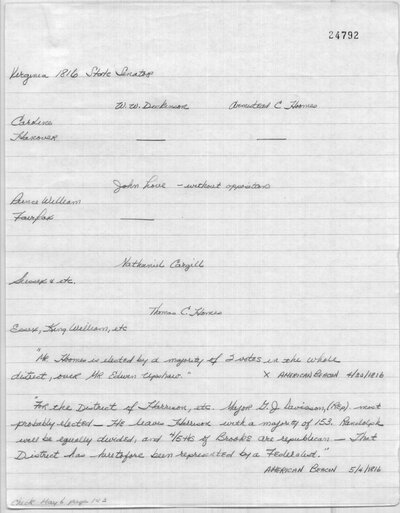 24792
Virginia 1816 State Senator
W. W. Dickenson Armistead C. Hoomes
Caroline
Hanover
John Love - without opposition
Prince William
Fairfax
Nathaniel Cargill
Sussex & etc.
Thomas C. Hoomes
Essex, King William, etc
"Mr Hoomes is elected by a majority of 2 votes in the whole
district, over Mr Edwin Upshaw." X AMERICAN BEACON 4/30/1816
"For the District of Harrison, etc. Major G. J. Davisson, (Rep) most
probably elected - He leaves Harrison with a majority of 153. Randolph
will be equally divided, and 4/5ths of Brooke are republican - That
District has heretofore been represented by a Federalist."
AMERICAN BEACON 5/6/1816
Check May 6 page 1 c 3